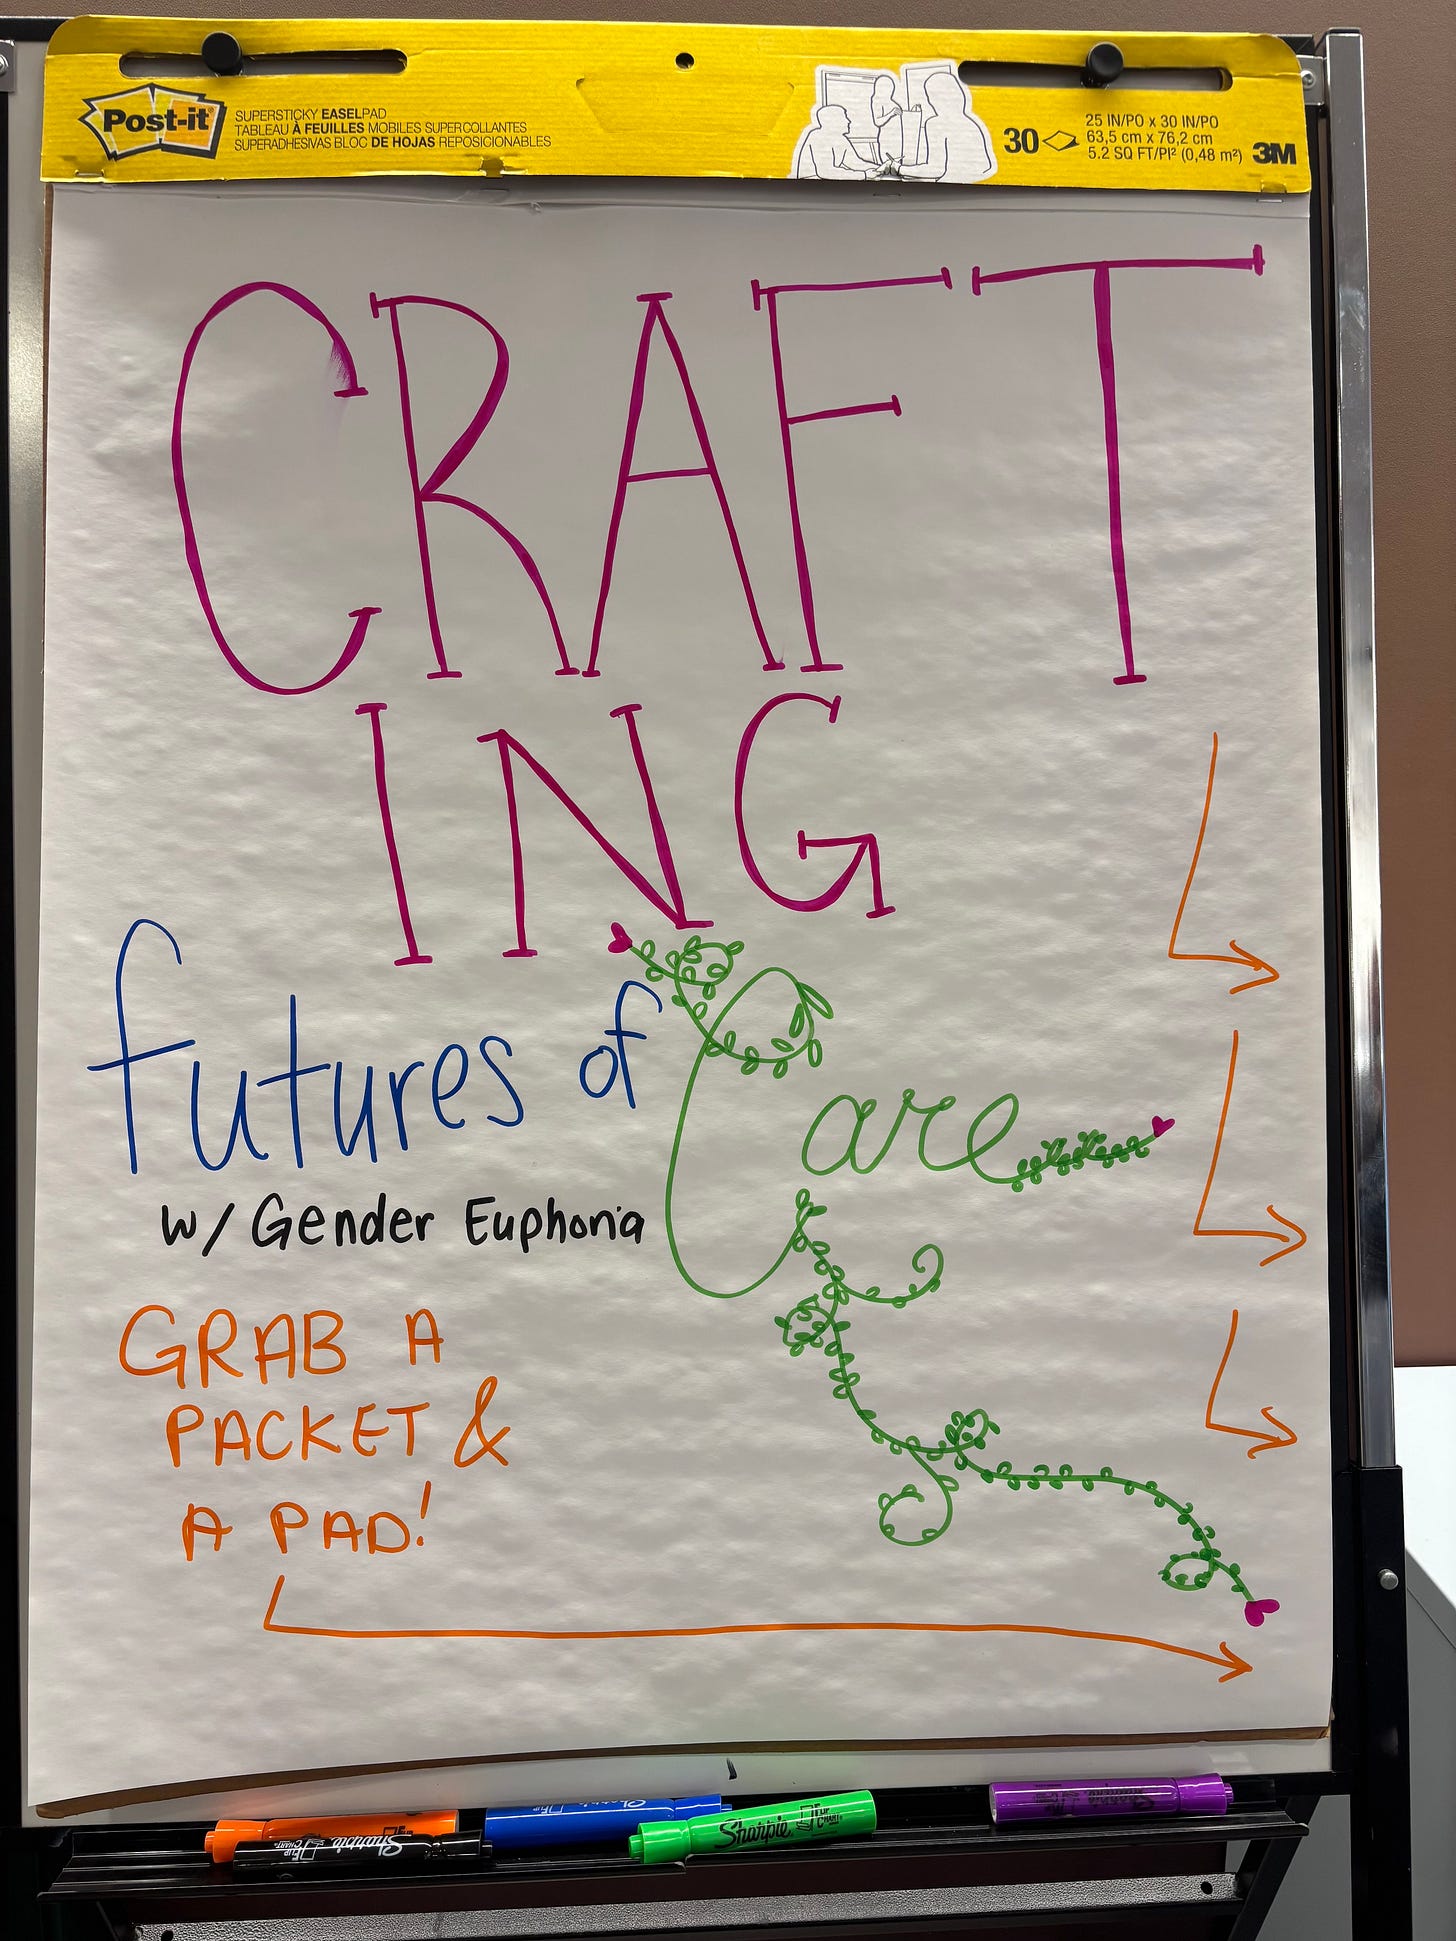 Post-it
SUPERSTICKY EASELPAD
TABLEAU À FEUILLES MOBILES SUPERCOLLANTES
SUPERADHESIVAS BLOC DE HOJAS REPOSICIONABLES
30
25 IN/PO x 30 IN/PO
63,5 cm x 76,2 cm
5.2 SQ FT/PI² (0,48 m²)
3M
CRAFT
ING
futures of Care
w/ Gender Euphoria
GRAB A
PACKET &
A PAD!
Sharpie FLIP CHART
Sharpie
Sharpie FLIP CHART